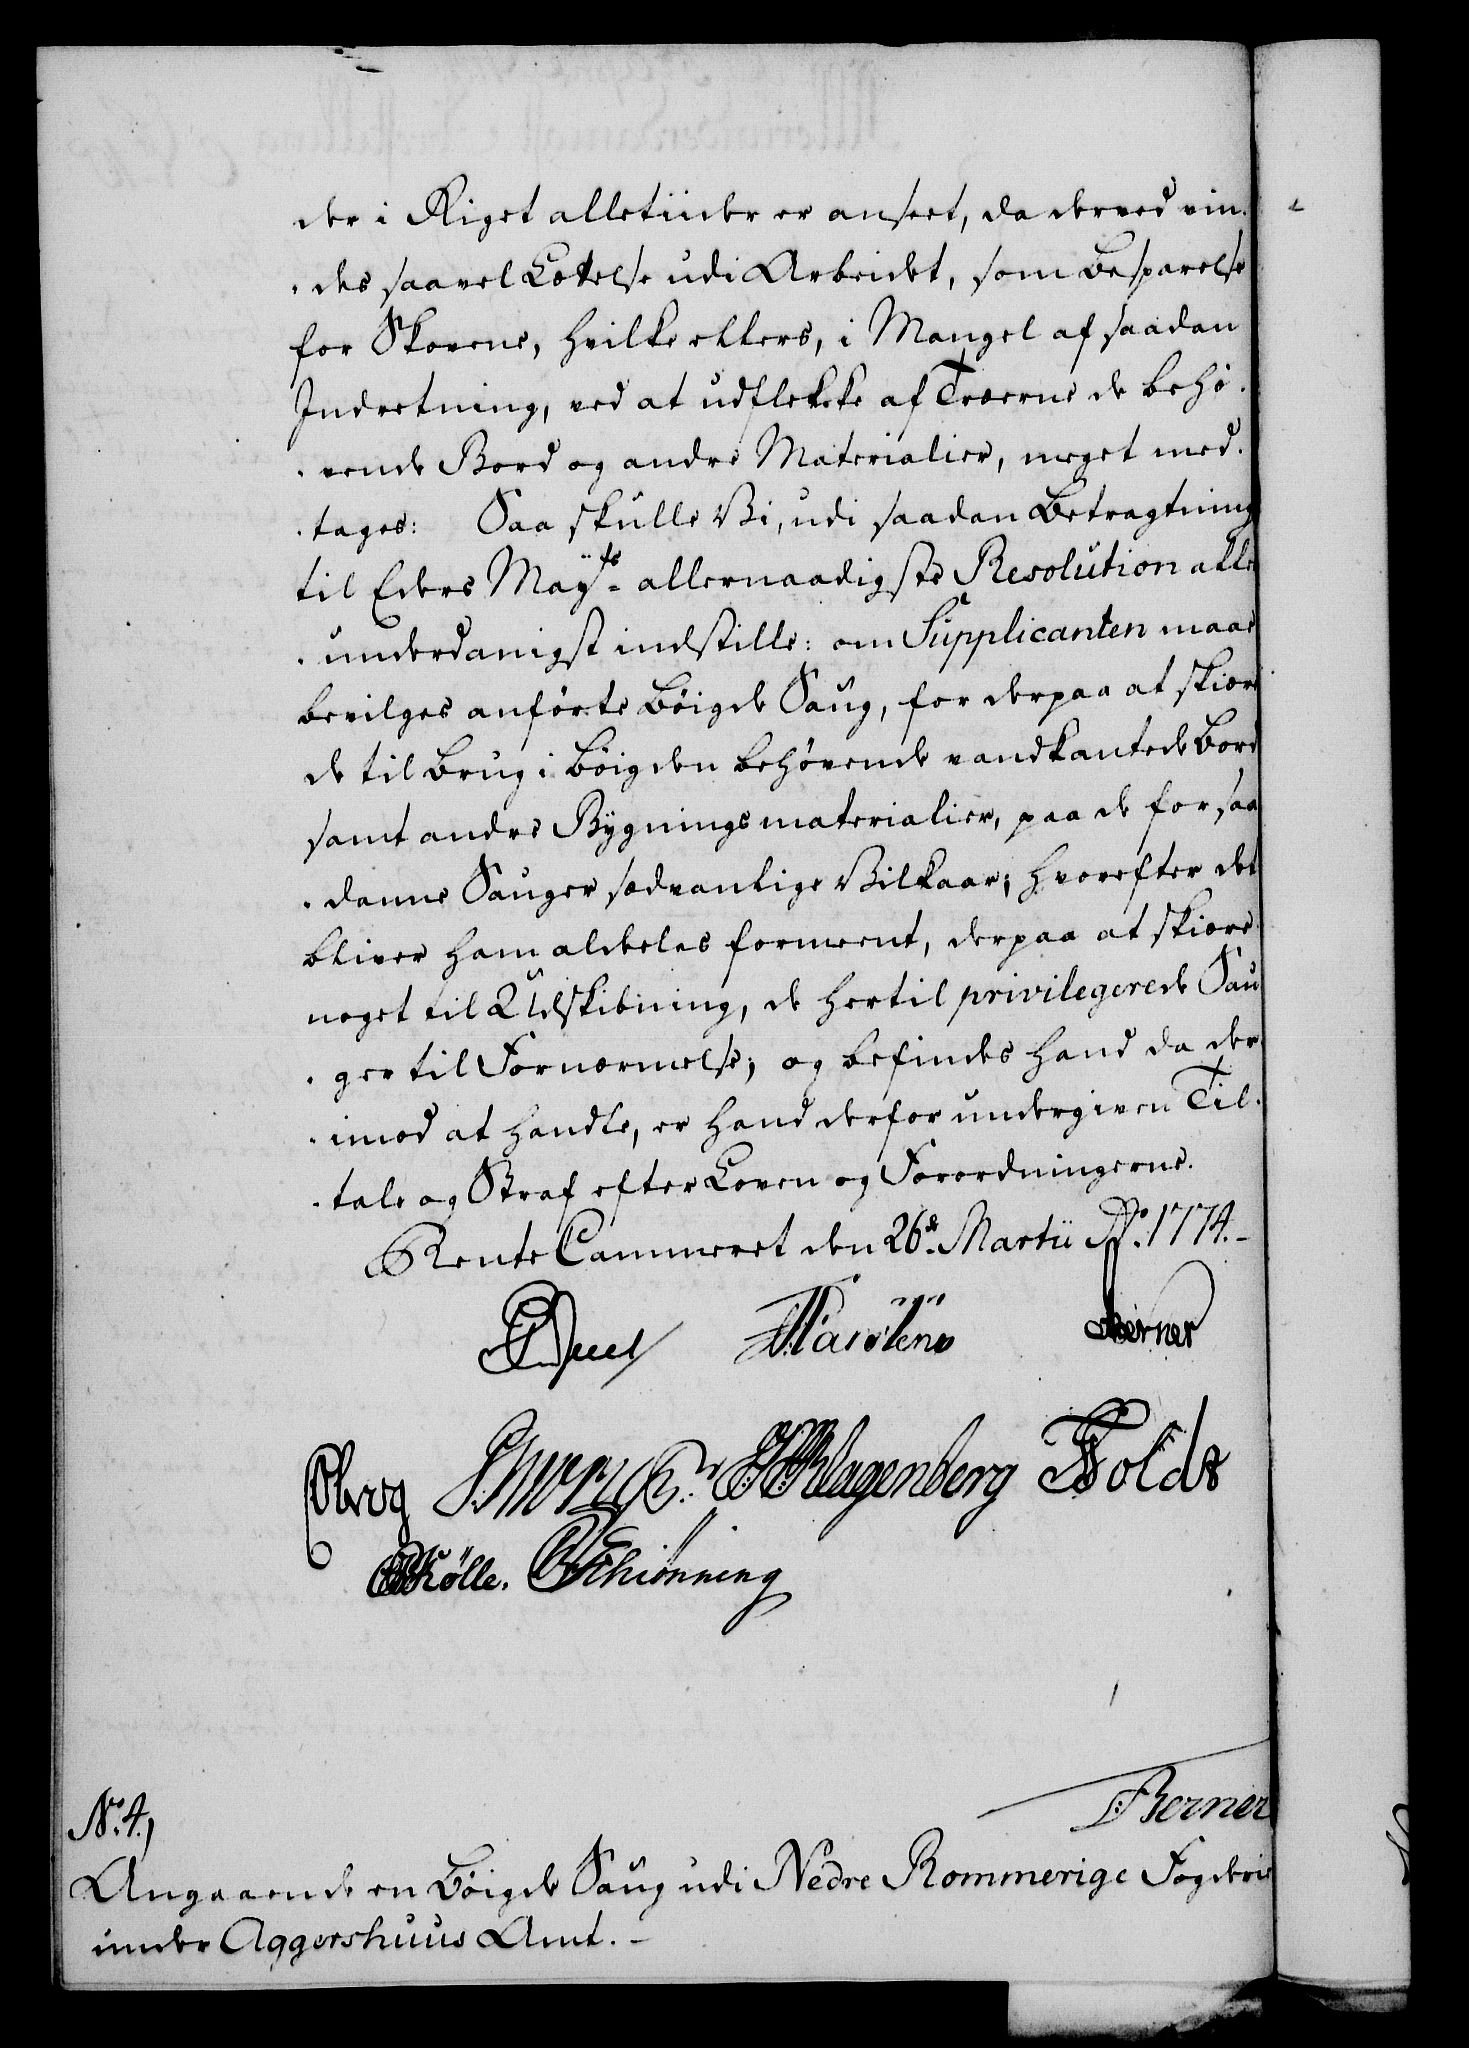 der i Riget alletiider er anseet, da derved vin-
-des saavel Lættelse udi Arbeidet, som Besparelse
for Skovene, hvilke ellers, i Mangel af saadan
Indretning, ved at udflekke af Træerne de behø-
-vende Bord og andre Materialier, meget med-
-tages: Saa skulle Vi, udi saadan Betragtning
til Eders Mayts allernaadigste Resolution aller
-underdanigst indstille: om Supplicanten maae
bevilges anførte Bøigde Saug, for derpaa at skiære
de til Brug i Bøigden behøvende vandkantede Bord
samt andre Bygningsmaterialier, paa de for saa
-danne Sauger sædvanlige Vilkaar; hvorefter det
bliver ham aldeles formeent, derpaa at skiære
noget til Udskibning, de hertil privilegerede Sau
-ger til Fornærmelse; og befindes hand da der
-imod at handle, er hand derfor undergiven Til-
-tale og Straf efter Loven og Forordningerne.
Rente Cammeret den 26de Martii Ao. 1774.-
Juel Berner
Klagenberg Holdt
Kølle. Schiønning
Berner
No. 4.)
Angaaende en Bøigde Saug udi Nedre Rommerige Fogderie
under Aggershuus Amt. -